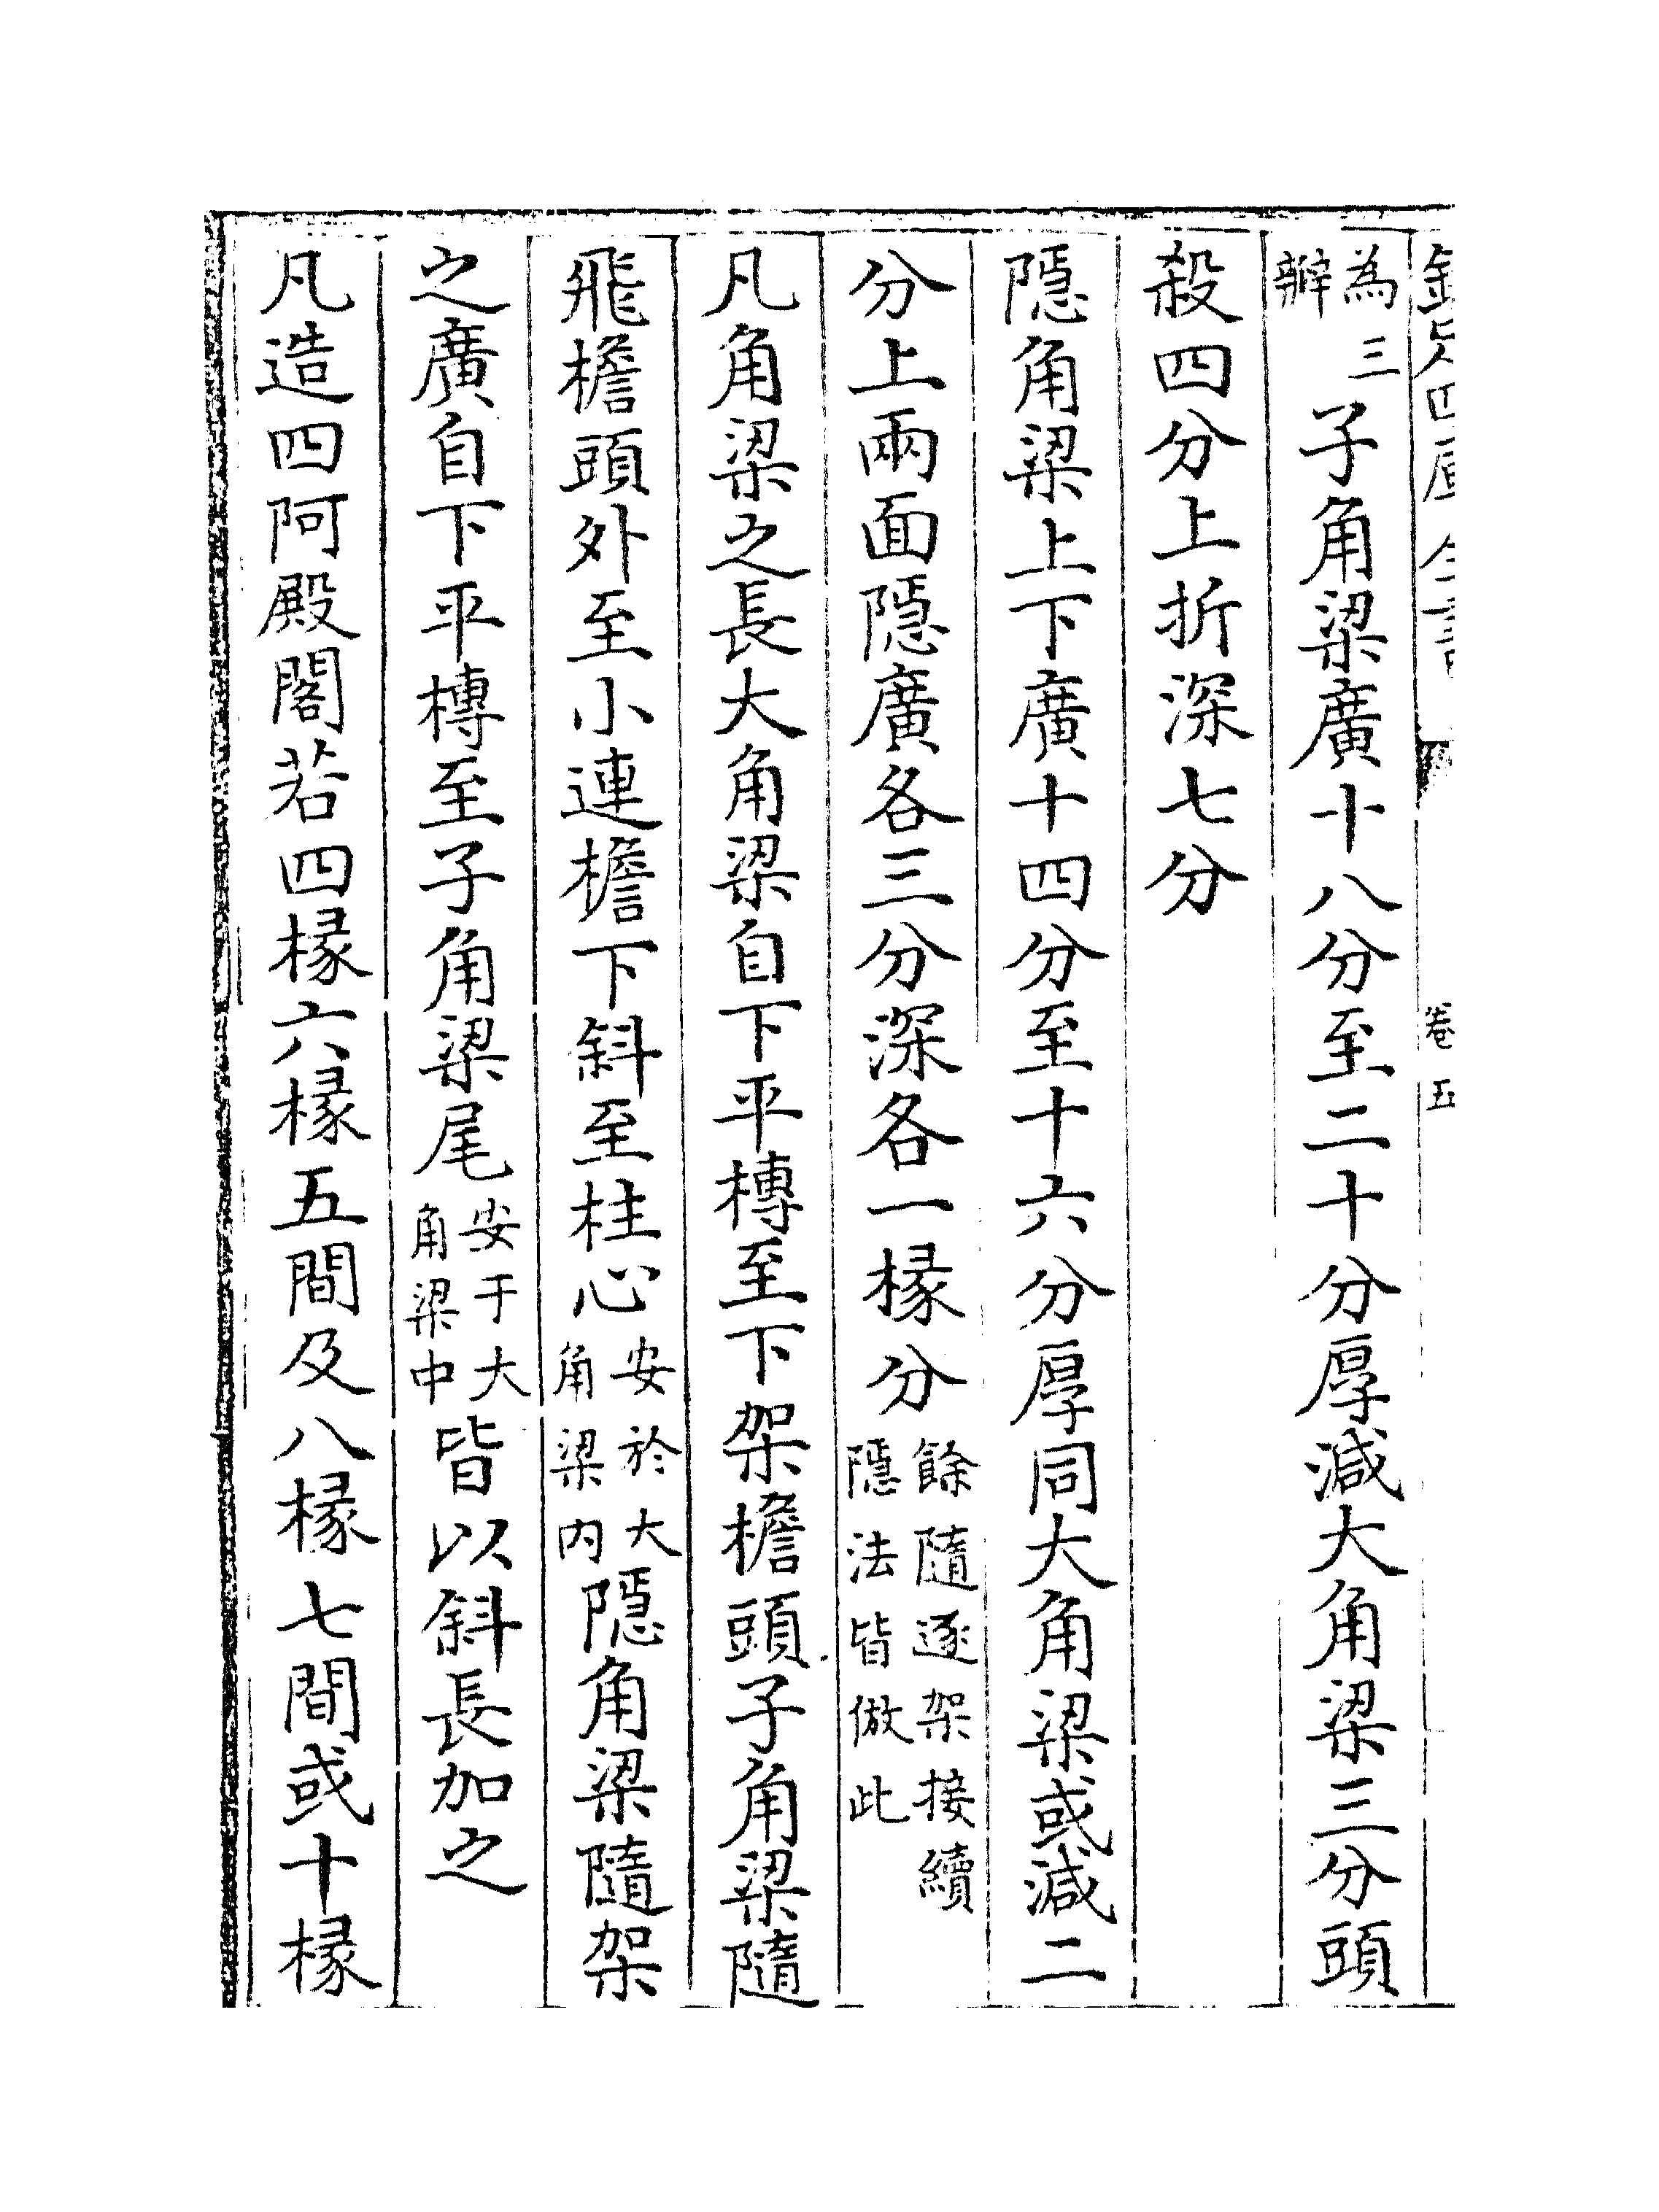 欽定四庫全書 卷五
為三辦子角梁廣十八分至二十分厚減大角梁三分頭
殺四分上折深七分
隱角梁上下廣十四分至十六分厚同大角梁或減二
分上兩面隱廣各三分深各一椽分餘隨逐架接續隱法皆倣此
凡角梁之長大角梁自下平槫至下架檐頭子角梁隨
飛檐頭外至小連檐下斜至柱心安於大角梁内隱角梁隨架
之廣自下平槫至子角梁尾安于大角梁中皆以斜長加之
凡造四阿殿閣若四椽六椽五間及八椽七間或十椽